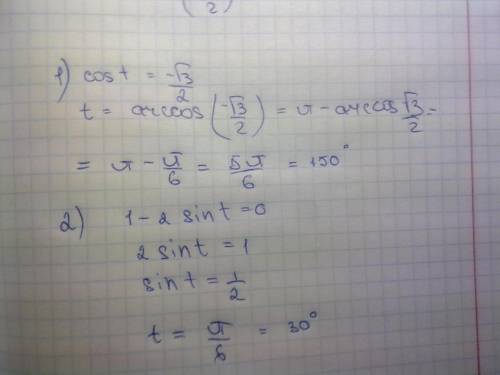 2)
1) cos t = -√3/2
t = arccos(-√3/2) = π - arccos √3/2 =
= π - π/6 = 5π/6 = 150°
2) 1 - 2 sin t = 0
2 sin t = 1
sin t = 1/2
t = π/6 = 30°